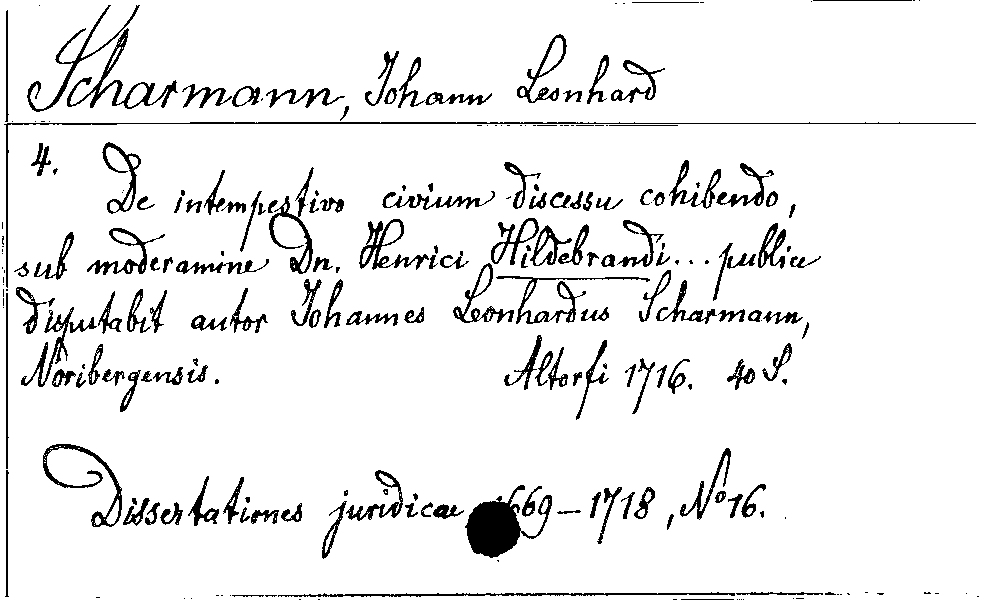 Scharmann, Johann Leonhard
4.
De intempestivo civium discessu cohibendo,
sub moderamine Dn. Henrici Hildebrandi... publice
disputabit autor Johannes Leonhardus Scharmann,
Noribergensis. Altorfi 1716. 40 S.
Dissertationes juridicae 1669-1718, No 16.